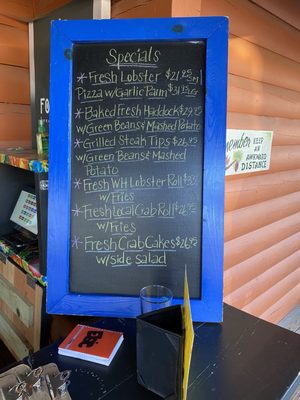 Specials
* Fresh Lobster $21.95 SM
Pizza w/Garlic Parm $31.95 LG
* Baked Fresh Haddock
w/Green Beans & Mashed Potato
* Grilled Steak Tips $26.95
w/Green Beans & Mashed
Potato
* Fresh WH Lobster Roll
w/Fries
* Fresh Local Crab Roll
w/Fries
* Fresh Crab Cakes $26.95
w/side salad
KEEP
AN
AWKWARD
DISTANCE